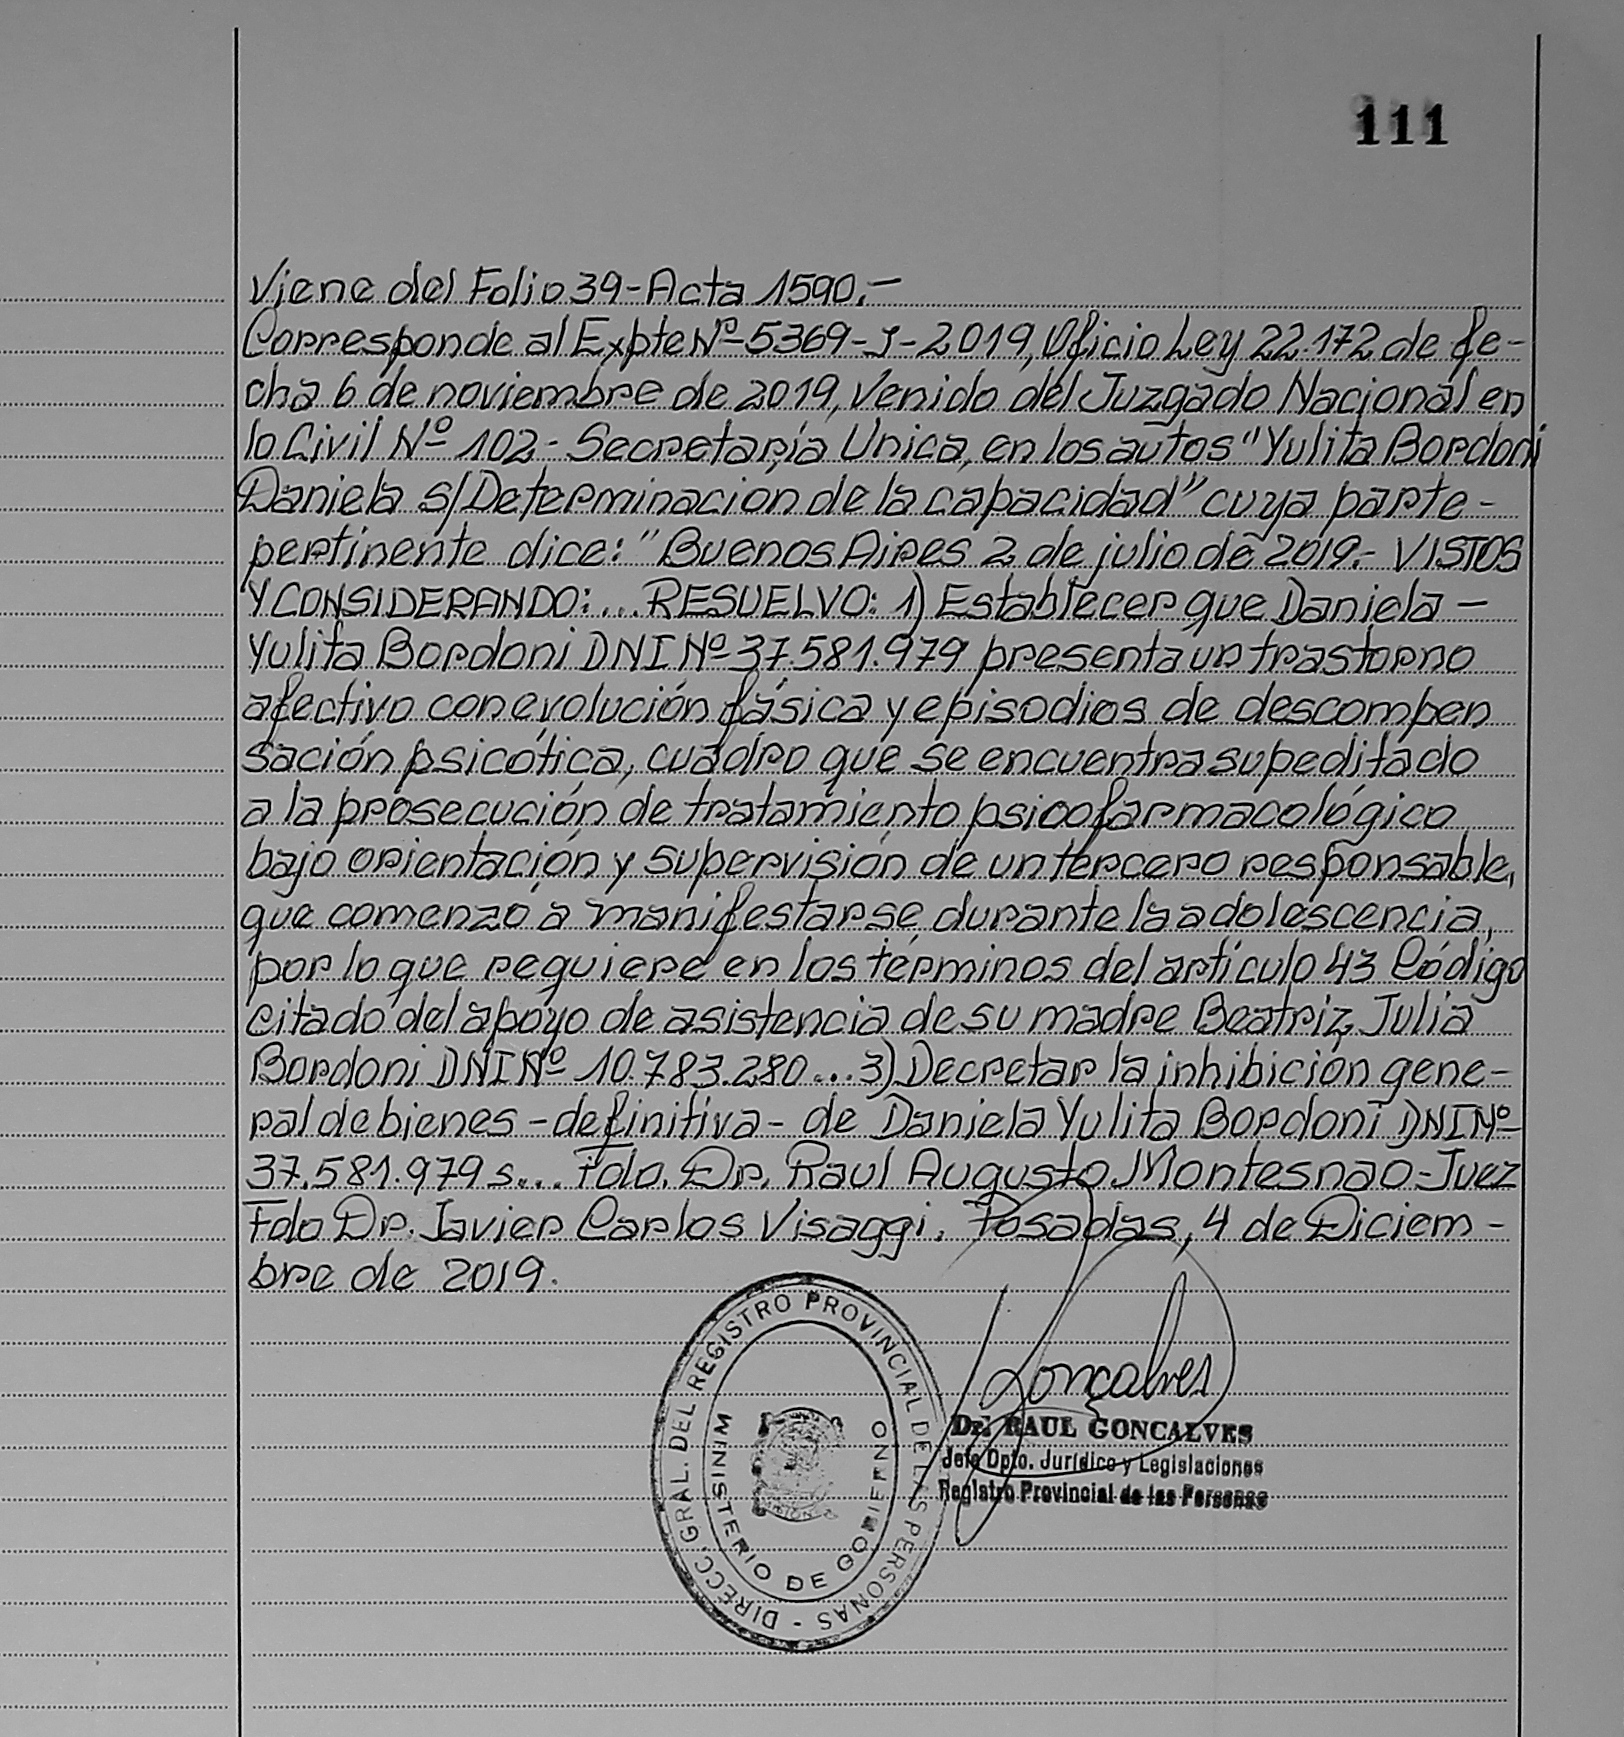 111
Viene del Folio 39-Acta 1590.-
Corresponde al Expte Nº-5369-J-2019, Oficio Ley 22.172 de fe-
cha 6 de noviembre de 2019, Venido del Juzgado Nacional en
lo Civil Nº 102- Secretaría Unica, en los autos "Yulita Bordoni
Daniela s/Determinacion de la capacidad" cuya parte-
pertinente dice: "Buenos Aires 2 de julio de 2019.- VISTOS
Y CONSIDERANDO:...RESUELVO: 1) Establecer que Daniela-
Yulita Bordoni DNI Nº 37.581.979 presenta un trastorno
afectivo con evolución fásica y episodios de descompen
sación psicótica, cuadro que se encuentra supeditado
a la prosecución de tratamiento psicofarmacológico
bajo orientación y supervisión de un tercero responsable,
que comenzó a manifestarse durante la adolescencia,
por lo que requiere en los términos del artículo 43 Código
citado del apoyo de asistencia de su madre Beatriz Julia
Bordoni DNI Nº 10.783.280...3) Decretar la inhibición gene-
ral de bienes -definitiva- de Daniela Yulita Bordoni DNI Nº
37.581.979 s... Fdo. Dr. Raul Augusto Montesnao-Juez
Fdo Dr. Javier Carlos Visaggi. Posadas, 4 de Diciem-
bre de 2019.
DIRECC. GRAL. DEL REGISTRO PROVINCIAL DE LAS PERSONAS -
MINISTERIO DE GOBIERNO
Gonçalves
Dr. RAUL GONCALVES
Jefe Dpto. Jurídico y Legislaciones
Registro Provincial de las Personas